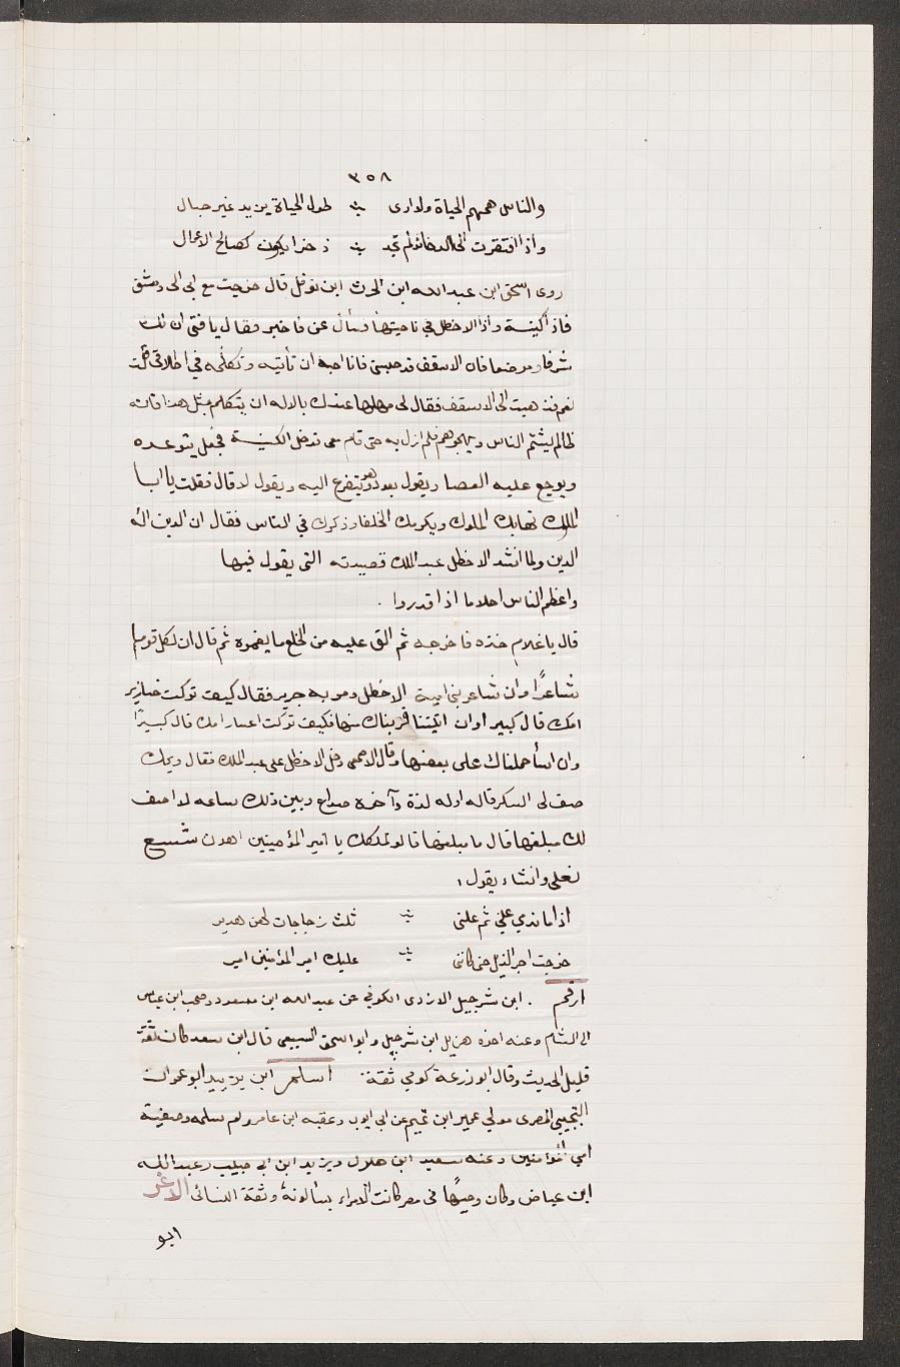 ٣٥٨
والناس همهم الحياة ولا ارى ⁘ طول الحياة يزيد غير خبال
واذا افتقرت الى الذخائر لم تجد ⁘ ذخرا يكون كصالح الاعمال
روى اسحق ابن عبد الله ابن الحرث ابن نوفل قال خرجت مع ابي الى دمشق
فاذا كنيسة واذا الاخطل في ناحيتها فسأل عن فاخبر فقال يا فتى ان لك
شرفا وموضعا فان الاسقف قد حبسني فانا احب ان تأتيه وتكلمه في اطلاقي قلت
نعم فذهبت الى الاسقف فقال لي مهلا اعيذك بالاله ان يتكلم مثل هذا فانه
ظالم يشتم الناس ويهجوهم فلم ازل به حتى قام معي فدخل الكنيسة فجعل يتوعده
ويوجع عليه العصا ويقول بعود وهو يتضرع اليه ويقول لا قال فقلت يا ابا
المالك تهابك الملوك ويكرمك الخلفا وذكرك في الناس فقال ان الدين انه
الدين ولما انشد الاخطل عبد الملك قصيدته التي يقول فيها
واعظم الناس احلاما اذا قدروا .
قال يا غلام خذه فاخرجه ثم الق عليه من الخلع ما يغمره ثم قال ان لكل قوم
شاعرًا وان شاعر بني امية الاخطل ومر به جرير فقال كيف تركت خنازير
امك قال كبير اوان اتيتنا قريناك منها فكيف تركت اعيار امك قال كبيرًا
وان اسأ حملناك على بعضها وقال الاصمعي دخل الاخطل على عبد الملك فقال ويحك
صف لي السكر قال اوله لذة وآخره صداع وبين ذلك ساعه لا اصف
لك مبلغها قال ما مبلغها قال لملكك يا امير المؤمنين اهون شسع
نعلي وانشاء يقول ،
اذا ما نديمي علني ثم علني ⁘ ثلث زجاجات لهن هدير
خرجت اجر الذيل حتى كانني ⁘ عليك امير المؤمنين امير
ارقم . ابن شرحبيل الازدي الكوفي عن عبد الله ابن مسعود وصحب ابن عباس
الى الشام وعنه اخوه هزيل ابن شرحبيل وابو اسحق السبيعي قال ابن سعد كان ثقة
قليل الحديث وقال ابو زرعة كوفي ثقة اسلم ابن يزيد ابو عمران
التجيبي المصري مولى عمير ابن تميم عن ابي ايوب وعقبه ابن عامر وام سلمه وصفية
امي المؤمنين وعنه سعيد ابن هلال ويزيد ابن ابي حبيب وعبد الله
ابن عياض وكان وجيهًا في مصر كانت الامراء يسألونه وثقة النسائي الاغر
ابو